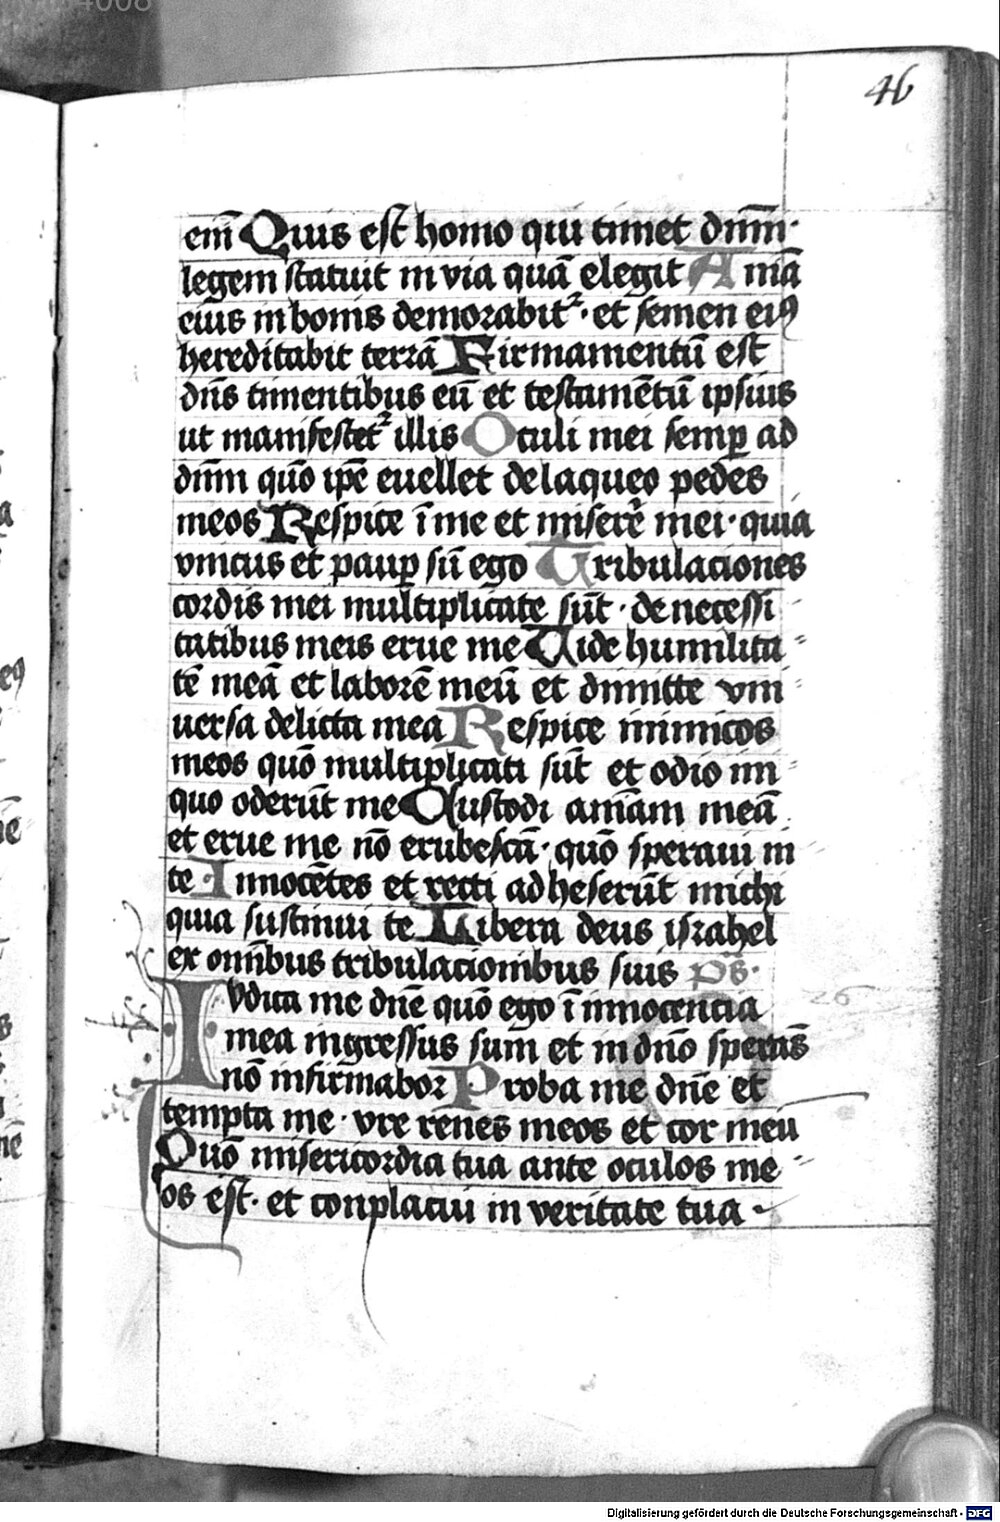 46
em̄ Quis est homo qui timet dn̄m·
legem statuit in via quā elegit A nīa
eius in bonis demorabit᷑· et semen eiꝰ
hereditabit terrā Firmamentū est
dn̄s timentibus eū et testamētū ipsius
ut manifestet᷑ illis Oculi mei semꝑ ad
dn̄m quō ip̄e euellet de laqueo pedes
meos Respice ī me et miserē mei· quia
vnicus et pauꝑ sū ego Tribulaciones
cordis mei multiplicate sūt· de necessi
tatibus meis erue me Uide humilita
tē meā et laborē meū et dimitte vni
uersa delicta mea Respice inimicos
meos quō multiplicati sūt et odio ini
quo oderūt me Custodi anīam meā
et erue me nō erubescā· quō speraui in
te Innocētes et recti adheserūt michi
quia sustinui te Libera deus israhel
ex omībus tribulacionibus suis ps̄·
IVdica me dn̄e quō ego ī innocencia
mea ingressus sum et in dn̄o sperās̄
nō infirmabor Proba me dn̄e et
tempta me· vre renes meos et cor meū
Quō misericordia tua ante oculos me
os est· et conplacui in veritate tua
Digitalisierung gefördert durch die Deutsche Forschungsgemeinschaft - DFG